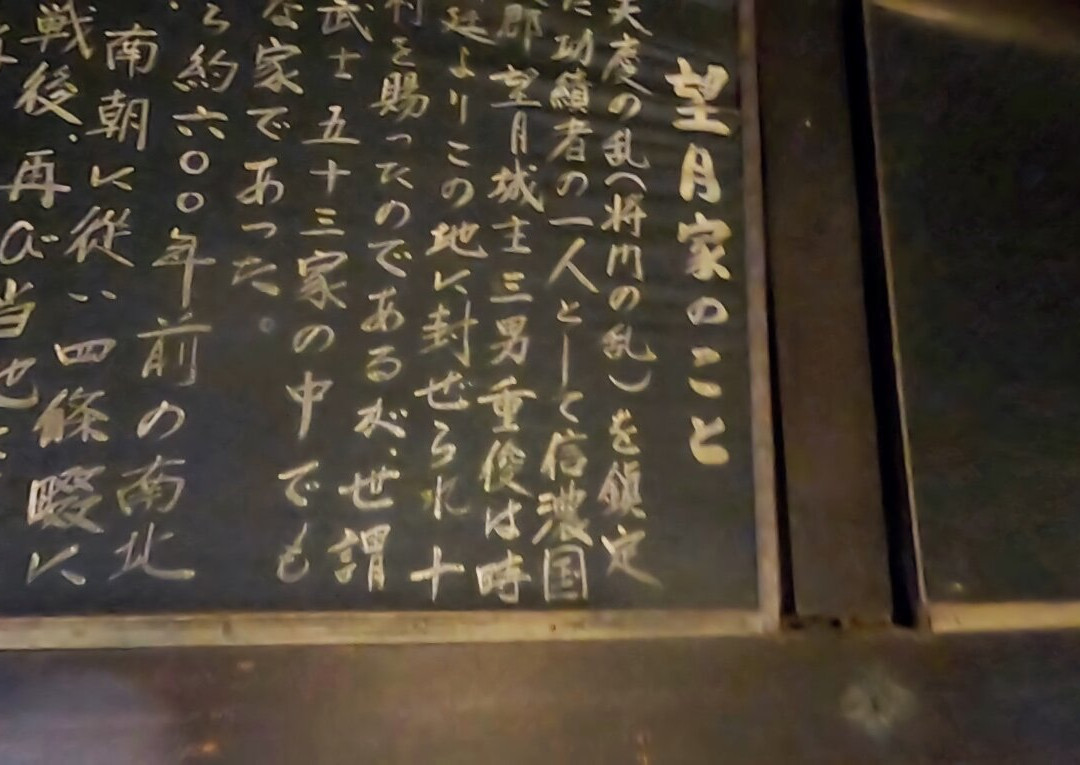 望月家のこと
天慶の乱(将門の乱)を鎮定
た功績者の一人として信濃国
郡望月城主三男重俊は時
廷よりこの地に封ぜられ十
村を賜ったのであるが、世謂
武士五十三家の中でも
な家であった。
ら約六〇〇年前の南北
南朝に従い四條畷に
戦後、再び当地